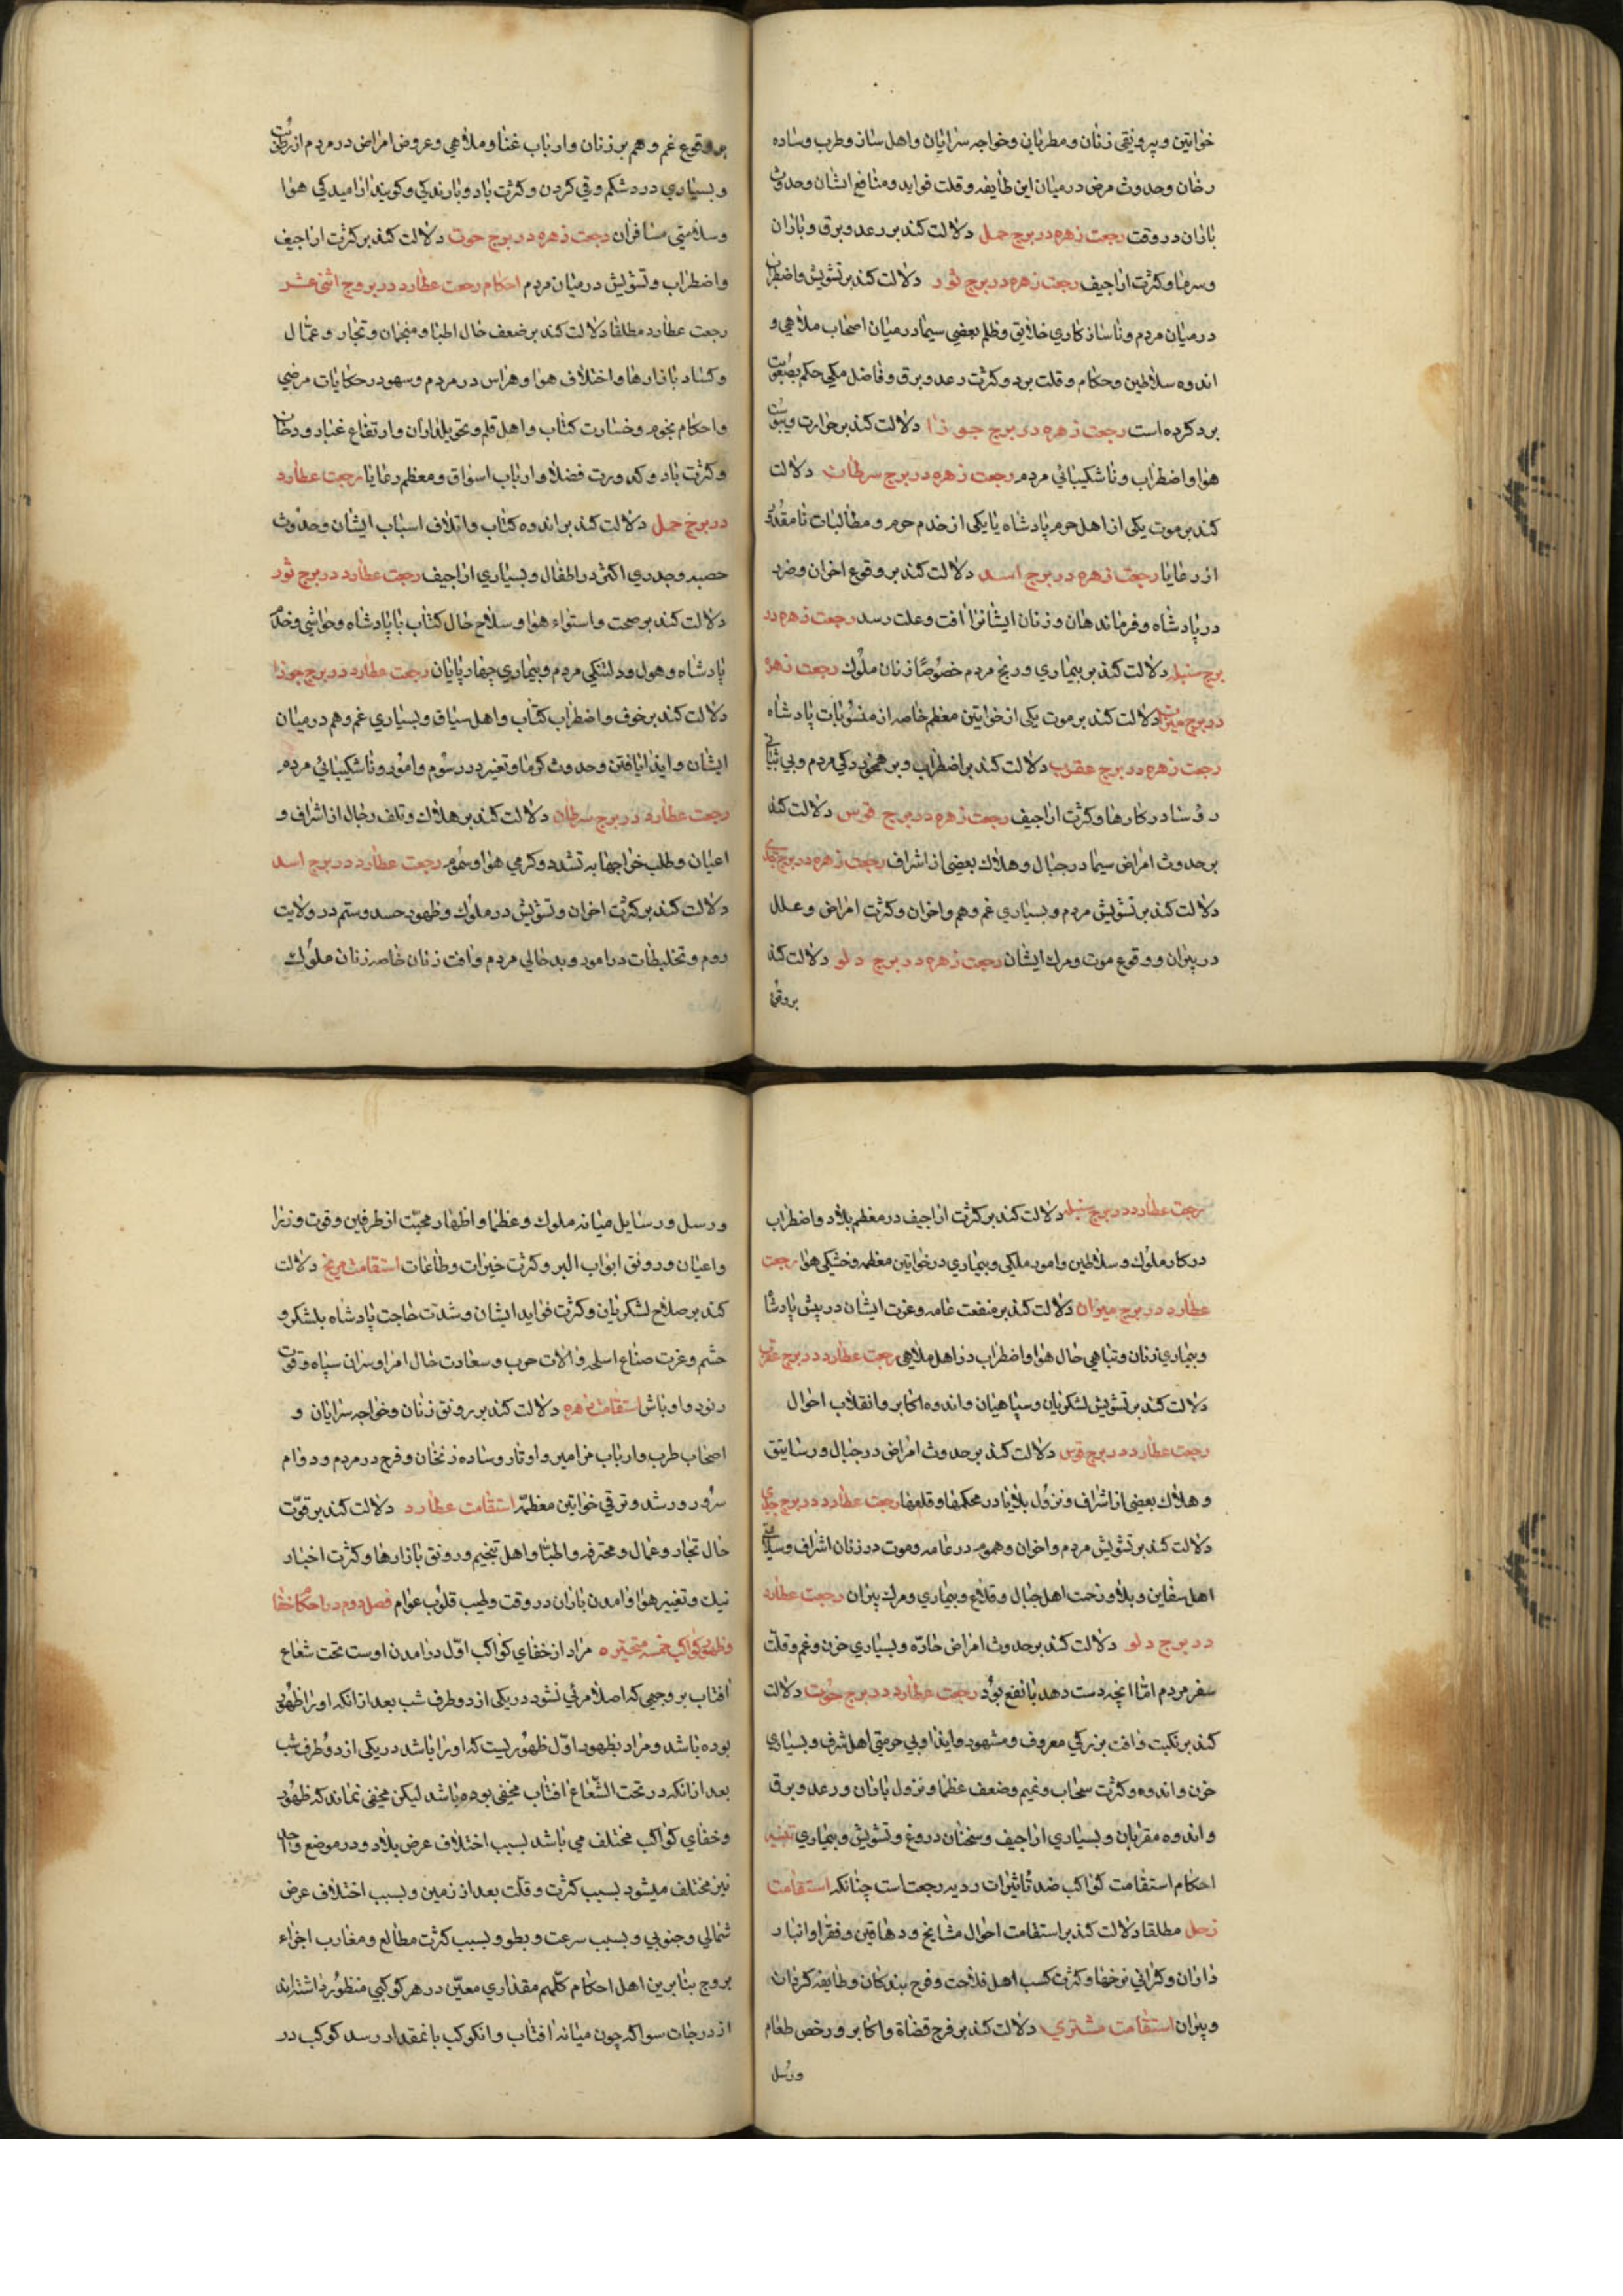 خواتین و بی رونقی زنان و مطربان و خواجه سرایان و اهل ساز و طرب و ساده
رخان و حدوث مرض در میان این طایفه و قلت فواید و منافع ایشان و حدوث
باران در وقت رجعت زهره در برج حمل دلالت کند بر رعد و برق و باران
و سرما و کثرت اراجیف رجعت زهره در برج ثور دلالت کند بر تشویش و اضطراب
در میان مردم و ناسازکاری خلایق و ظلم بعضی سیما در میان اصحاب ملاهی و
اندوه سلاطین و حکام و قلت برد و کثرت رعد و برق و فاضل مکی حکم بصعوبت
برد کرده است رجعت زهره در برج جوزا دلالت کند بر حرارت و یبوست
هوا و اضطراب و ناشکیبائی مردم رجعت زهره در برج سرطان دلالت
کند بر موت یکی از اهل حرم پادشاه یا یکی از خدم حرم و مطالبات نامقدور
از رعایا رجعت زهره در برج اسد دلالت کند بر وقوع اخوان و ضرر
در پادشاه و فرماندهان و زنان ایشانرا افت و علت رسد رجعت زهره در
برج سنبله دلالت کند بر بیماری و رنج مردم خصوصا زنان ملوک رجعت زهره
در برج میزان دلالت کند بر موت یکی از خواتین معظم خاصه از منسوبات پادشاه
رجعت زهره در برج عقرب دلالت کند بر اضطراب و برهمخوردکی مردم و بی ثباتی
رؤسا در کارها و کثرت اراجیف رجعت زهره در برج قوس دلالت کند
بر حدوث امراض سیما در جبال و هلاک بعضی از اشراف رجعت زهره در برج جدی
دلالت کند بر تشویش مردم و بسیاری غم و هم و اخوان و کثرت امراض و علل
در پیران و وقوع موت و مرک ایشان رجعت زهره در برج دلو دلالت کند
بر وقوع
بر وقوع غم و هم بر زنان و ارباب غنا و ملاهی و عروض امراض در مردم از رطوبت
و بسیاری درد شکم و قی کردن و کثرت باد و بارندکی و کویند ارامیدکی هوا
و سلامتی مسافران رجعت زهره در برج حوت دلالت کند بر کثرت اراجیف
و اضطراب و تشویش در میان مردم احکام رجعت عطارد در بروج اثنی عشر
رجعت عطارد مطلقا دلالت کند بر ضعف حال اطبا و منجمان و تجار و عمال
و کساد بازارها و اختلاف هوا و هراس در مردم و سهو در حکایات مرضی
و احکام نجوم و خسارت کتاب و اهل قلم و تحویلداران و ارتفاع غبار و دخان
و کثرت باد و کدورت فضلا و ارباب اسواق و معظم رعایا رجعت عطارد
در برج حمل دلالت کند بر اندوه کتاب و اتلاف اسباب ایشان و حدوث
حصبه و جدری اکثر در اطفال و بسیاری اراجیف رجعت عطارد در برج ثور
دلالت کند بر صحت و استواء هوا و سلاح حال کتاب با پادشاه و حواشی و خدم
پادشاه و هول و دلتنکی مردم و بیماری چهارپایان رجعت عطارد در برج جوزا
دلالت کند بر خوف و اضطراب کتاب و اهل سیاق و بسیاری غم و هم در میان
ایشان و ایذا یافتن و حدوث کرما و تغیر در رسوم و امور و ناشکیبائی مردم
رجعت عطارد در برج سرطان دلالت کند بر هلاک و تلف رجال از اشراف و
اعیان و طلب خراجها به تشدد و کرمی هوا و سموم رجعت عطارد در برج اسد
دلالت کند بر کثرت اخوان و تشویش در ملوک و ظهور حسد و ستم در ولایت
روم و تخلیطات در امور و بدحالی مردم و افت زنان خاصه زنان ملوک
رجعت عطارد در برج سنبله دلالت کند بر کثرت اراجیف در معظم بلاد و اضطراب
در کار ملوک و سلاطین و امور ملکی و بیماری در خواتین معظمه و خشکی هوا رجعت
عطارد در برج میزان دلالت کند بر منفعت عامه و عزت ایشان در پیش پادشاه
و بیماری زنان و تباهی حال هوا و اضطراب در اهل ملاهی رجعت عطارد در برج عقرب
دلالت کند بر تشویش لشکریان و سپاهیان و اندوه اکابر و انقلاب احوال
رجعت عطارد در برج قوس دلالت کند بر حدوث امراض در جبال و رساتیق
و هلاک بعضی از اشراف و نزول بلایا در محکمها و قلعها رجعت عطارد در برج جدی
دلالت کند بر تشویش مردم و اخوان و هموم در عامه و موت در زنان اشراف و سلامتی
اهل سفاین و بلا و زحمت اهل جبال و قلاع و بیماری و مرک پیران رجعت عطارد
در برج دلو دلالت کند بر حدوث امراض حاده و بسیاری حزن و غم و قلت
سفر مردم اما انچه دست دهد با نفع بود رجعت عطارد در برج حوت دلالت
کند بر نکبت و افت بزرکی معروف و مشهور و ایذا و بی حرمتی اهل شرف و بسیاری
حزن و اندوه و کثرت سحاب و غیم و ضعف عظما و نزول باران و رعد و برق
و اندوه مقربان و بسیاری اراجیف و سخنان دروغ و تشویش و بیماری تنبیه
احکام استقامت کواکب ضد تاثیرات ردیه رجعت است چنانکه استقامت
زحل مطلقا دلالت کند بر استقامت احوال مشایخ و دهاقین و فقرا و انبار
داران و کرانی نرخها و کثرت کسب اهل فلاحت و فرح بندکان و طایفه کردان
و پیران استقامت مشتری دلالت کند بر فرح قضاة و اکابر و رخص طعام
و رسل
و رسل و رسایل میانه ملوک و عظما و اظهار محبت از طرفین و قوت وزرا
و اعیان و رونق ابواب البر و کثرت خیرات و طاعات استقامت مریخ دلالت
کند بر صلاح لشکریان و کثرت فواید ایشان و شدت حاجت پادشاه بلشکر و
حشم و عزت صناع اسلحه و الات حرب و سعادت حال امرا و سران سپاه و قوت
رنود و اوباش استقامت زهره دلالت کند بر رونق زنان و خواجه سرایان و
اصحاب طرب و ارباب مزامیر و اوتار و ساده زنخان و فرح در مردم و دوام
سرور و رشد و ترقی خواتین معظمه استقامت عطارد دلالت کند بر قوت
حال تجار و عمال و محترفه و اطبا و اهل تنجیم و رونق بازارها و کثرت اخبار
نیک و تغییر هوا و امدن باران در وقت و طیب قلوب عوام فصل دوم در احکام خفا
و ظهور کواکب خمسه متحیره مراد از خفای کواکب اول در امدن اوست تحت شعاع
افتاب بر وجهی که اصلا مرئی نشود در یکی از دو طرف شب بعد از انکه او را ظهور
بوده باشد و مراد بظهور اول ظهوریست که او را باشد در یکی از دو طرف شب
بعد از انکه در تحت الشعاع افتاب مخفی بوده باشد لیکن مخفی نماند که ظهور
و خفای کواکب مختلف می باشد بسبب اختلاف عرض بلاد و در موضع واحد
نیز مختلف میشود بسبب کثرت و قلت بعد از زمین و بسبب اختلاف عرض
شمالی و جنوبی و بسبب سرعت و بطو و بسبب کثرت مطالع و مغارب اجزاء
بروج بنابرین اهل احکام کلهم مقداری معین در هر کوکبی منظور داشته اند
از درجات سوا که چون میانه افتاب و انکوکب بانمقدار رسد کوکب در